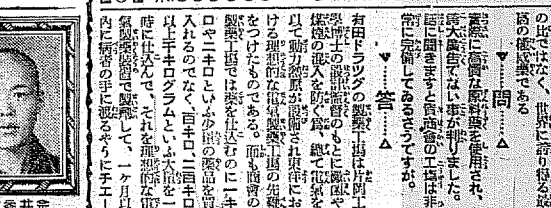 の比ではなく、世界に誇り得る最
高の優良藥である
△……問……△
實際に高價な原料藥を使用され、
誇大廣告でない事が判りました。
話に聞きますと貴商會の工場は非
常に完備してゐるさうですが。
△……答……△
有田ドラツグの製藥工場は片岡工
學博士の設計監督のもとに
煤煙の混入を防ぐ爲、總て電氣を
以て動力熱源が設備され東洋にお
ける理想的な電氣製藥工場の先鞭
をつけたものである。而も商會の
製藥工場では藥を仕込むのに一キ
ロや二キロといふ少量の藥品を買
入れるのでなく、百キロ、二百キロ
以上千キログラムといふ大量を一
時に仕込んで、それを理想的な電
氣製藥裝置で製藥して、一ヶ月以
内に病者の手に渡るやうにチエー